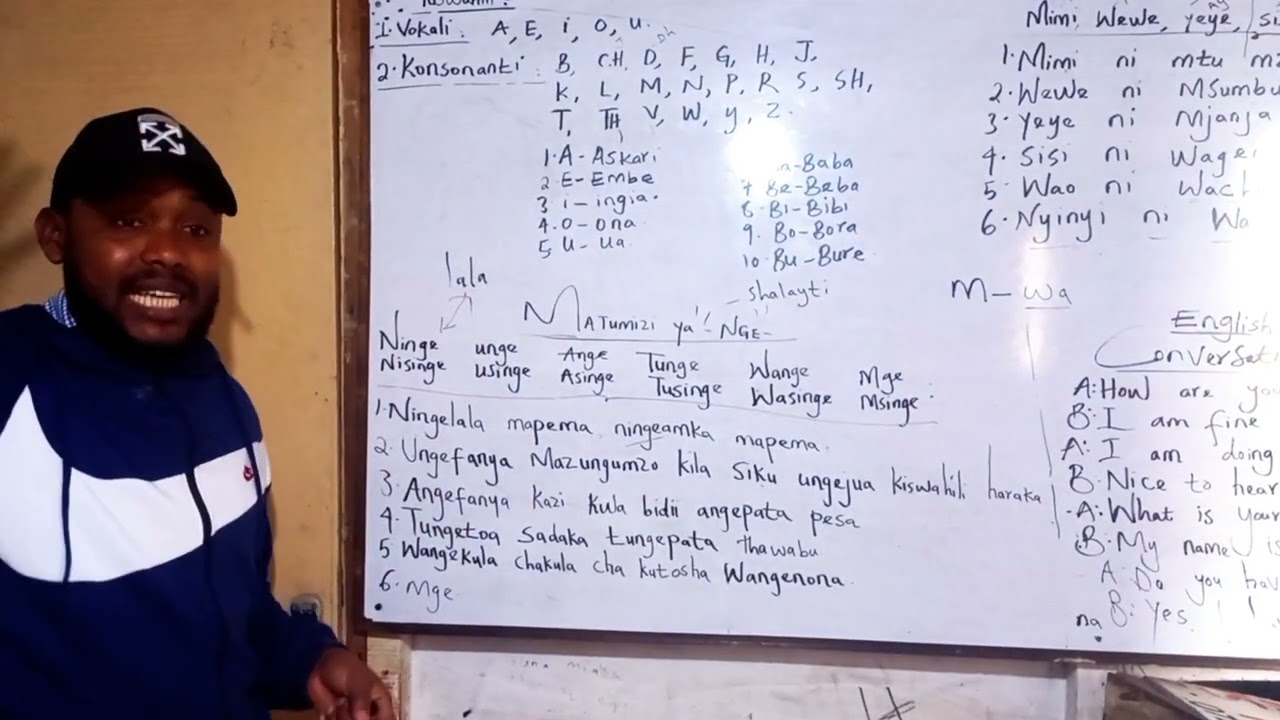 1. Vokali: A, E, i, O, u.
2. Konsonanti: B, CH, D, F, G, H, J,
dh
K, L, M, N, P, R S, SH,
T, TH, V, W, y, Z.
1. A - Askari
2 E - Embe
3 i - ingia.
4. O - Ona
5 U - Ua
a - Baba
7 Be - Beba
8. Bi - Bibi
9. Bo - Bora
10. Bu - Bure
Mimi, Wewe, yeye,
1. Mimi ni mtu
2. Wewe ni Msumbu
3. Yeye ni Mjanja
4. Sisi ni Wage
5 Wao ni Wach
6. Nyinyi ni Wa
M - wa
lala
Matumizi ya "NGE-"
- shalayti
Ninge unge Ange Tunge Wange Mge
Nisinge usinge Asinge Tusinge Wasinge Msinge.
1. Ningelala mapema ningeamka mapema.
2. Ungefanya Mazungumzo kila Siku ungejua kiswahili haraka
3. Angefanya kazi kwa bidii angepata pesa
4. Tungetoa Sadaka tungepata thawabu
5 Wangekula chakula cha kutosha Wangenona.
6. Mge
English
Conversat
A: How are you
B: I am fine
A: I am doing
B: Nice to hear
A: What is your
B: My name is
A: Do you hav
na B: Yes! I